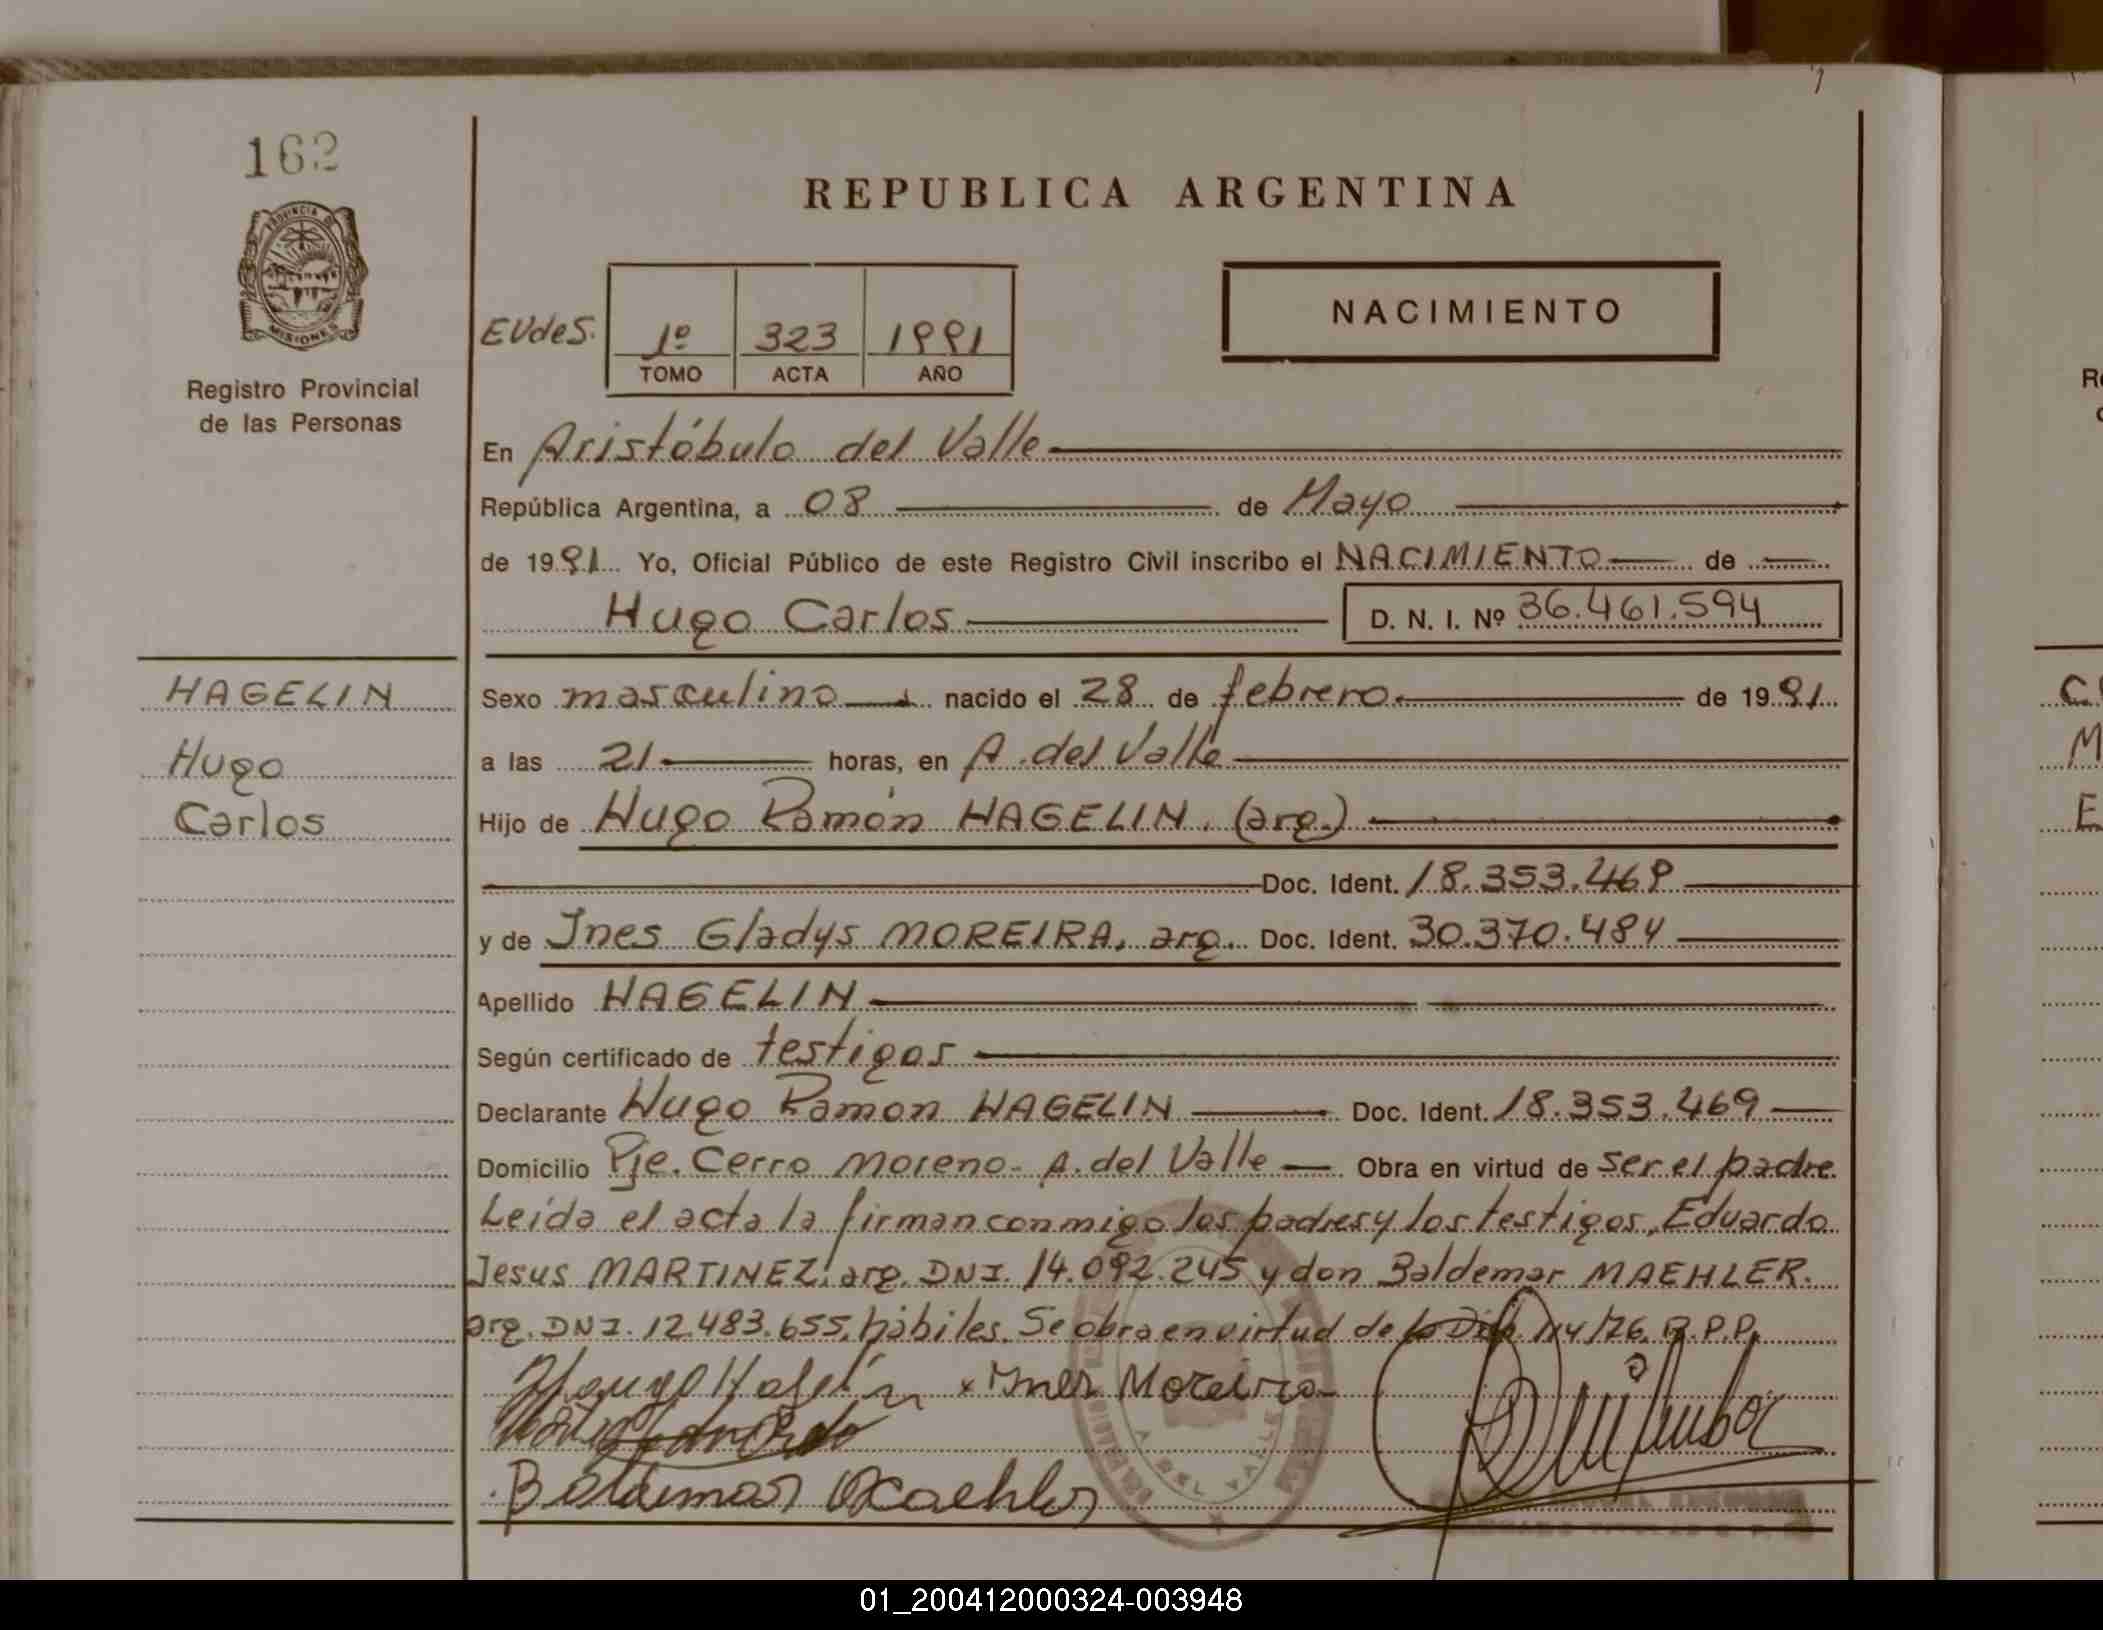 162
PROVINCIA DE
MISIONES
Registro Provincial
de las Personas
REPUBLICA ARGENTINA
EVdeS.
1º 323 1991
TOMO ACTA AÑO
NACIMIENTO
En Aristóbulo del Valle
República Argentina, a 08 de Mayo
de 1991 Yo, Oficial Público de este Registro Civil inscribo el NACIMIENTO de
Hugo Carlos D. N. I. Nº 36.461.594
HAGELIN
Hugo
Carlos
Sexo masculino nacido el 28 de febrero de 1991
a las 21 horas, en A. del Valle
Hijo de Hugo Ramón HAGELIN. (arg.)
Doc. Ident. 18.353.469
y de Ines Gladys MOREIRA, arg. Doc. Ident. 30.370.484
Apellido HAGELIN
Según certificado de testigos
Declarante Hugo Ramon HAGELIN Doc. Ident. 18.353.469
Domicilio Pje. Cerro Moreno - A. del Valle Obra en virtud de ser el padre.
Leída el acta la firman conmigo los padres y los testigos, Eduardo
Jesus MARTINEZ, arg. DNI. 14.092.245 y don Baldemar MAEHLER.
arg. DNI. 12.483.655, hábiles. Se obra en virtud de la Disp. 114/76 R.P.P.
x Ines Moreira
A. DEL VALLE
Baldemar Maehler
01_200412000324-003948